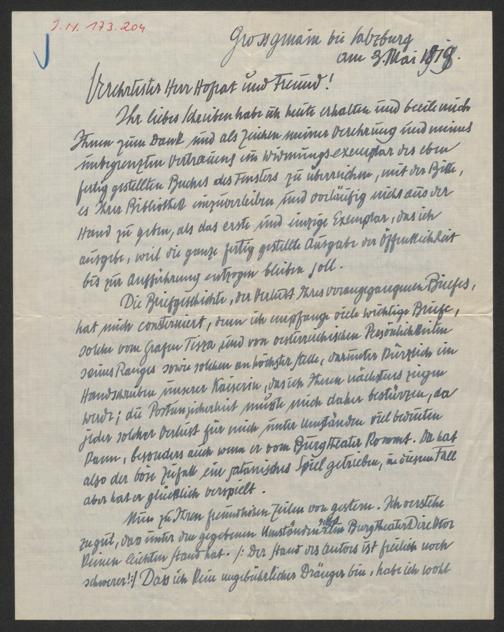 J.N. 173.204
Grossgmain bei Salzburg
am 3. Mai 1918.
Verehrtester Herr Hofrat und Freund!
Ihr liebes Schreiben habe ich heute erhalten und beeile mich
Ihnen zum Dank und als Zeichen meiner Verehrung und meines
unbegrenzten Vertrauens ein Widmungsexemplar des eben
fertig gestellten Buches des Fensters zu überreichen, mit der Bitte,
es Ihrer Bibliothek einzuverleiben und vorläufig nicht aus der
Hand zu geben, als das erste und einzige Exemplar, das ich
ausgebe, weil die ganze fertig gestellte Ausgabe der Öffentlichkeit
bis zur Aufführung entzogen bleiben soll.
Die Briefgeschichte, der Verlust Ihres vorangegangenen Briefes,
hat mich consterniert, denn ich empfange viele wichtige Briefe,
solche vom Grafen Tisza und von österreichischen Persönlichkeiten
seines Ranges sowie solchen an höchster Stelle, darunter kürzlich ein
Handschreiben unserer Kaiserin, das ich Ihnen nächstens zeigen
werde; die Postunsicherheit müsste mich daher bestürzen, da
jeder solcher Verlust für mich unter Umständen viel bedeuten
kann, besonders auch wenn er vom Burgtheater kommt. Da hat
also der böse Zufall ein satanisches Spiel getrieben, in diesem Fall
aber hat er glücklich verspielt.
Nun zu Ihren freundlichen Zeilen von gestern. Ich verstehe
zu gut, dass unter den gegebenen Umständen der Burgtheater Direktor
keinen leichten Stand hat. /: Der Stand des Autors ist freilich noch
schwerer!:/ Dass ich kein ungebührlicher Dränger bin, habe ich wohl